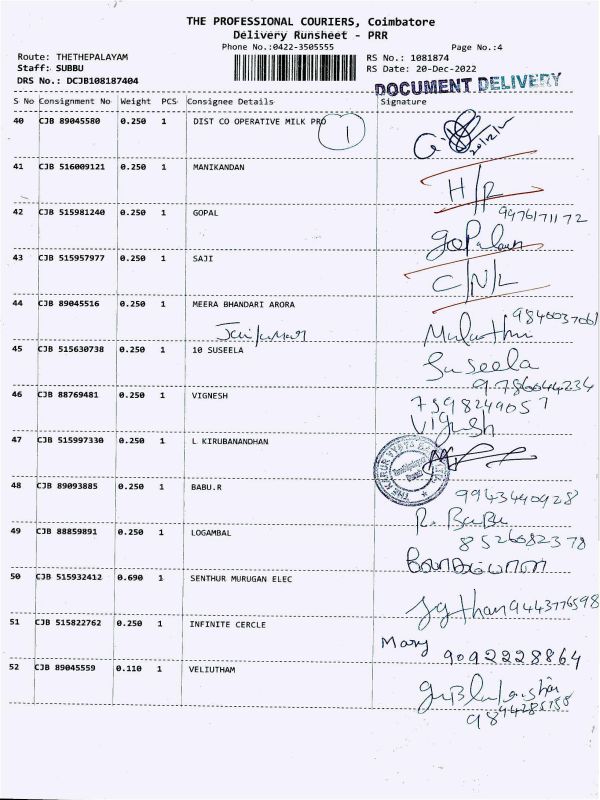 THE PROFESSIONAL COURIERS, Coimbatore
Delivery Runsheet - PRR
Phone No.:0422-3505555 Page No.:4
Route: THETHEPALAYAM RS No.: 1081874
Staff: SUBBU RS Date: 20-Dec-2022
DRS No.: DCJB108187404
DOCUMENT DELIVERY
S No Consignment No Weight PCS Consignee Details Signature
40 CJB 89045580 0.250 1 DIST CO OPERATIVE MILK PRO
1
41 CJB 516009121 0.250 1 MANIKANDAN
H/R
42 CJB 515981240 0.250 1 GOPAL 9976171172
Gopalan
43 CJB 515957977 0.250 1 SAJI
C/N/L
44 CJB 89045516 0.250 1 MEERA BHANDARI ARORA
Jaikumar
45 CJB 515630738 0.250 1 10 SUSEELA Suseela
46 CJB 88769481 0.250 1 VIGNESH 7598249057
Vignesh
47 CJB 515997330 0.250 1 L KIRUBANANDHAN
48 CJB 89093885 0.250 1 BABU.R 9943440928
R. Babu
49 CJB 88859891 0.250 1 LOGAMBAL 8526082378
50 CJB 515932412 0.690 1 SENTHUR MURUGAN ELEC
9443776598
51 CJB 515822762 0.250 1 INFINITE CERCLE
Mary 9092228864
52 CJB 89045559 0.110 1 VELIUTHAM